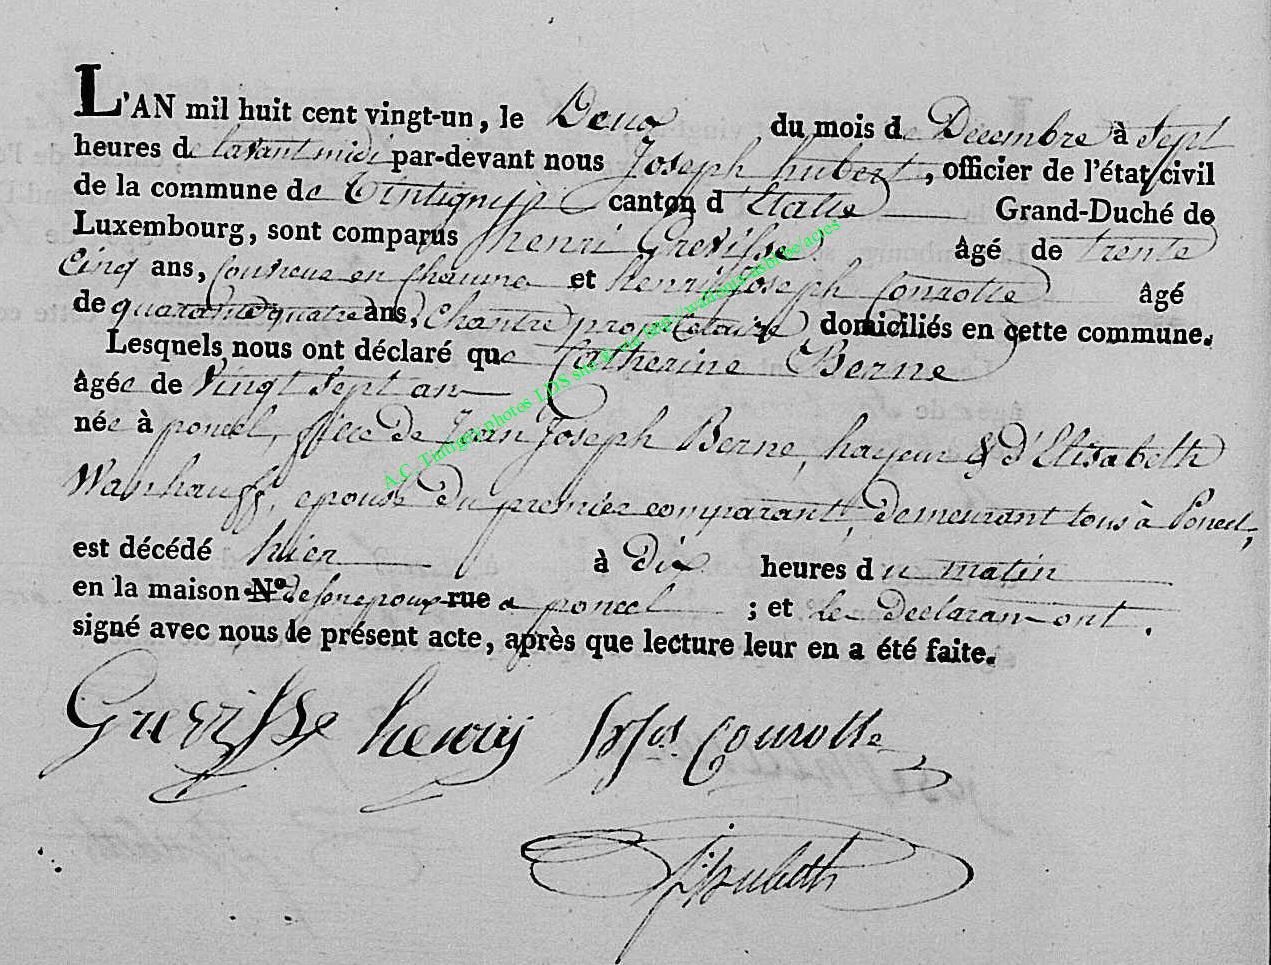 L'AN mil huit cent vingt-un, le Deux du mois de Decembre à Sept
heures de lavant midi par-devant nous Joseph hubert, officier de l'état civil
de la commune de Tintigny canton d'Etalle Grand-Duché de
Luxembourg, sont comparus henri Grevisse âgé de trente
Cinq ans, Couvreur en Chaume et henri Joseph Conrotte âgé
de quarante quatre ans, Chantre propriétaire domiciliés en cette commune.
Lesquels nous ont déclaré que Catherine Berne
âgée de Vingt Sept an
née à poncel, fille de Jean Joseph Berne, & d'Elisabeth
epouse du premier comparant, demeurant tous à Poncel,
est décédé hier à dix heures du matin
en la maison N.º de son epoux rue a poncel ; et les Declarans ont
signé avec nous le présent acte, après que lecture leur en a été faite.
A.C. Tintigny photos LDS site & via http://wallonia-asbl.be/actes
Grevisse henrij Conrotte